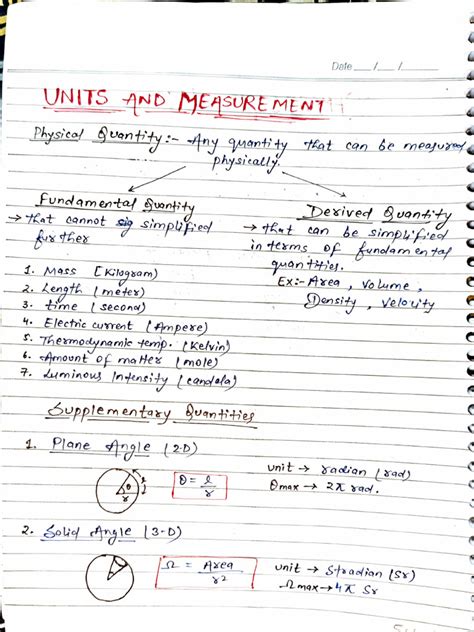 Date __/__/__
UNITS AND MEASUREMENT
Physical Quantity:- Any quantity that can be measured
physically.
Fundamental Quantity
→ that cannot simplified
further
1. Mass [Kilogram)
2. Length (meter)
3. time (second)
4. Electric current (Ampere)
5. Thermodynamic temp. (Kelvin)
6. Amount of matter (mole)
7. Luminous Intensity (candala)
Derived Quantity
→ that can be simplified
in terms of fundamental
quantities.
Ex:- Area, Volume,
Density, Velocity
Supplementary Quantities
1. Plane Angle (2-D)
θ
r
l
θ = l/r
unit → radian (rad)
θmax → 2π rad.
2. Solid Angle (3-D)
Ω = Area/r2
unit → Stradian (Sr)
Ωmax → 4π Sr